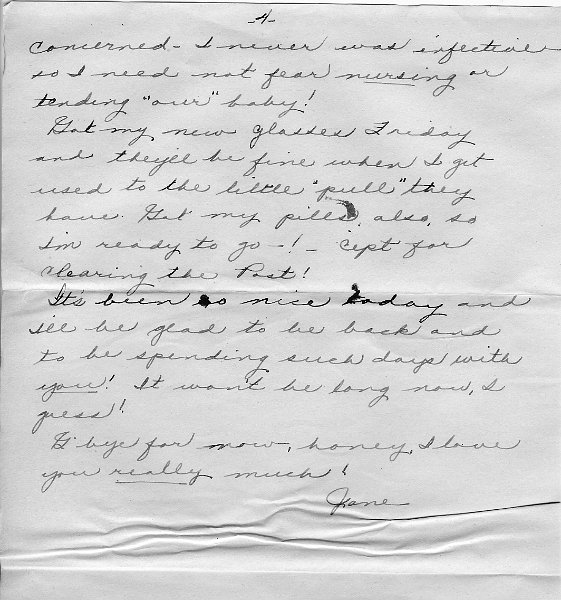 -4-
concerned - I never was infective
so I need not fear nursing or
tending "our" baby!
Got my new glasses Friday
and they'll be fine when I get
used to the little "pull" they
have. Got my pills, also, so
I'm ready to go -! - 'cept for
clearing the Post!
It's been so nice today and
I'll be glad to be back and
to be spending such days with
you! It won't be long now, I
guess!
G'bye for now, honey, I love
you really much!
Jane